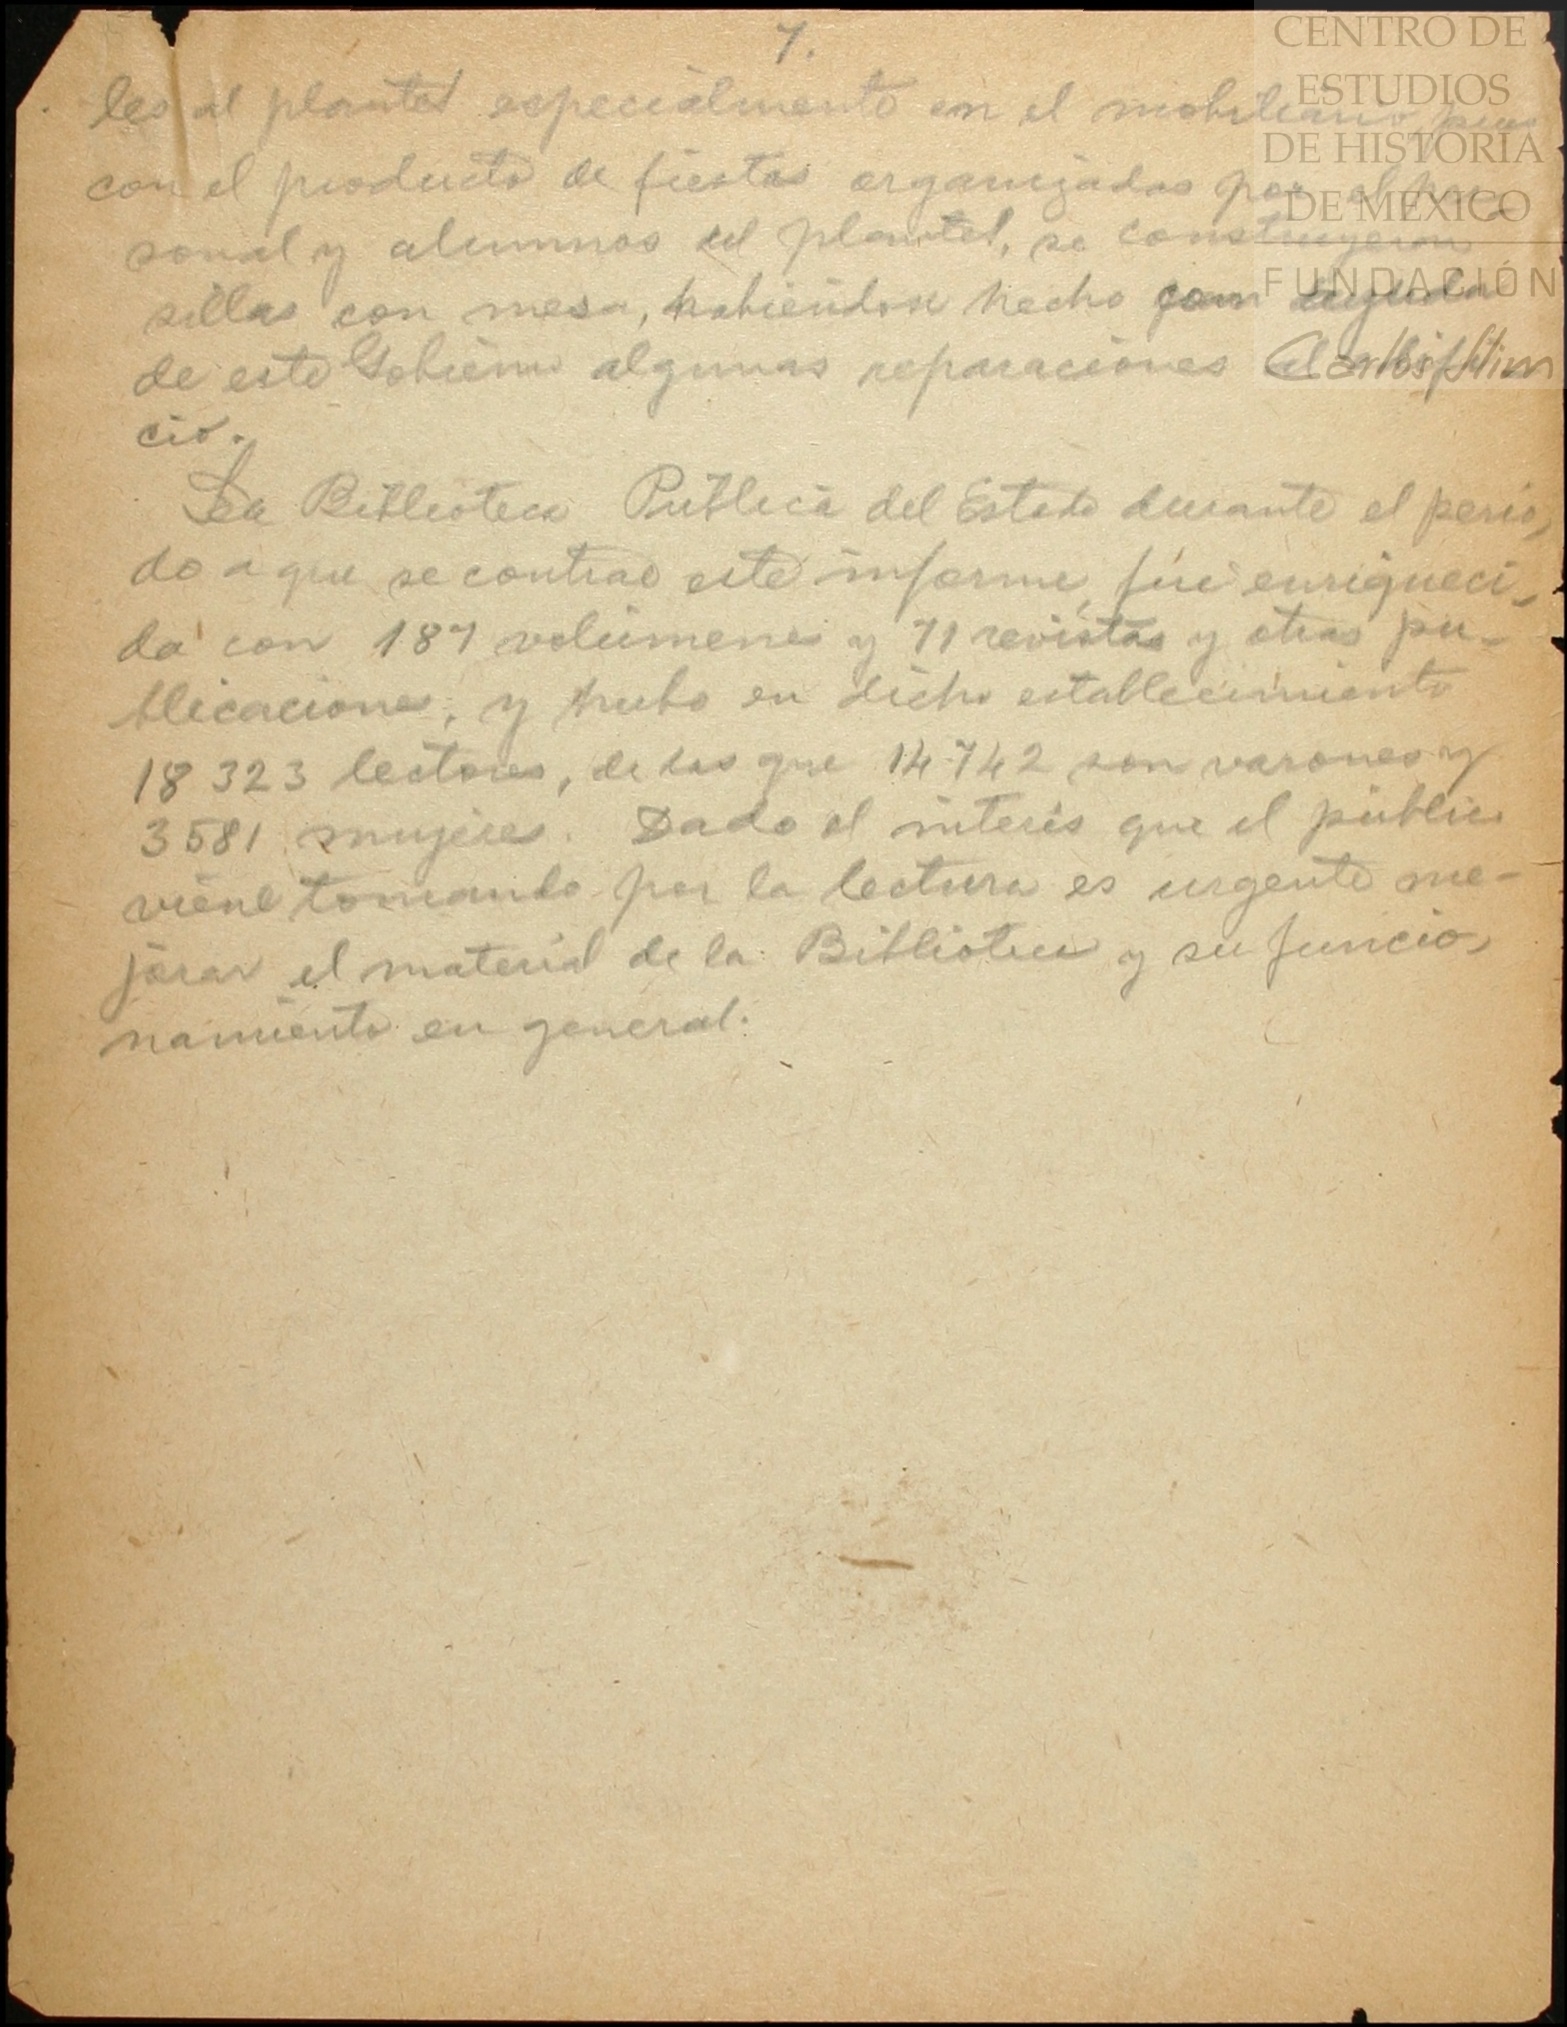 7.
les al plantel especialmente en el mobiliario pues
con el producto de fiestas organizadas por el per
sonal y alumnos del plantel, se construyeron
sillas con mesa, habiéndose hecho con ayuda
de este Gobierno algunas reparaciones al edifi
cio.
La Biblioteca Pública del Estado durante el perio,
do a que se contrae este informe, fué enriqueci,
da con 187 volúmenes y 71 revistas y otras pu-
blicaciones, y hubo en dicho establecimiento
18 323 lectores, de los que 14742 son varones y
3581 mujeres. Dado el interés que el público
viene tomando por la lectura es urgente me-
jorar el material de la Biblioteca y su funcio,
namiento en general.
CENTRO DE
ESTUDIOS
DE HISTORIA
DE MEXICO
FUNDACIÓN
Carlos Slim